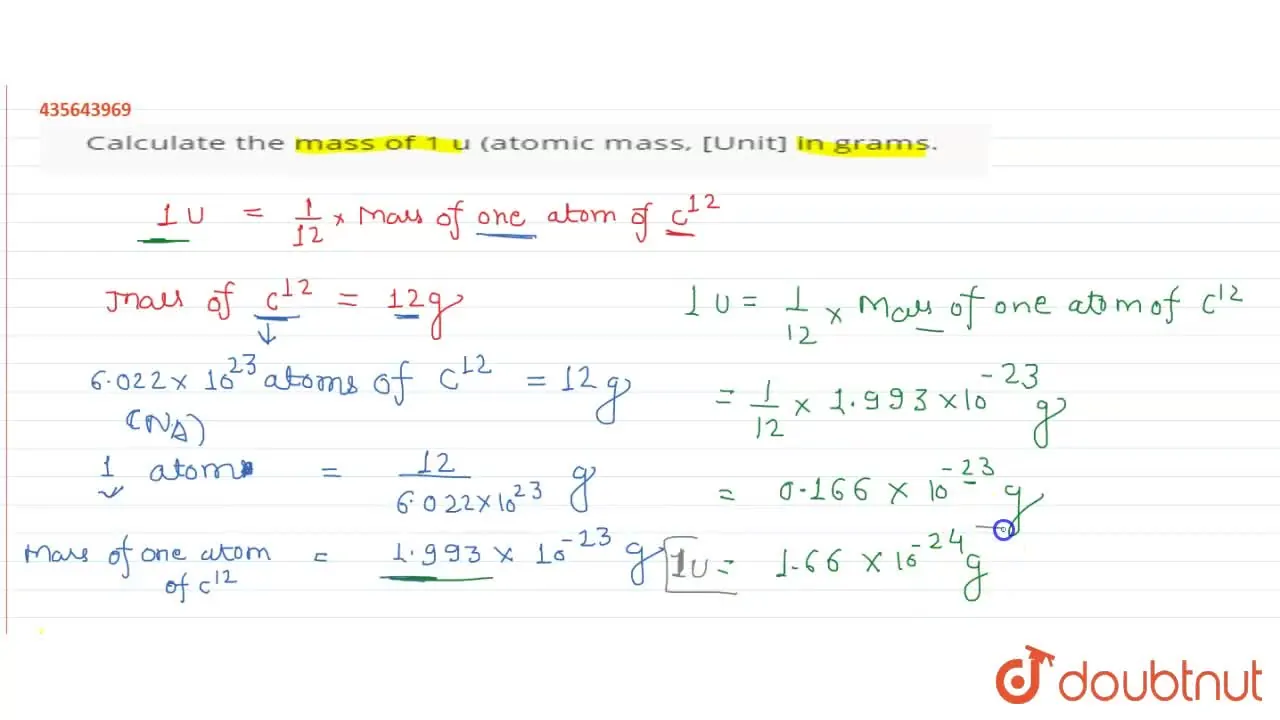 435643969
Calculate the mass of 1 u (atomic mass, [Unit] in grams.
1 U = 1/12 × Mass of one atom of C¹²
Mass of C¹² = 12g
6.022 × 10²³ atoms of C¹² = 12g
(NA)
1 atom = 12/6.022×10²³ g
Mass of one atom = 1.993 × 10⁻²³ g
of C¹²
1 U = 1/12 × Mass of one atom of C¹²
= 1/12 × 1.993 × 10⁻²³ g
= 0.166 × 10⁻²³ g
1U = 1.66 × 10⁻²⁴ g
doubtnut